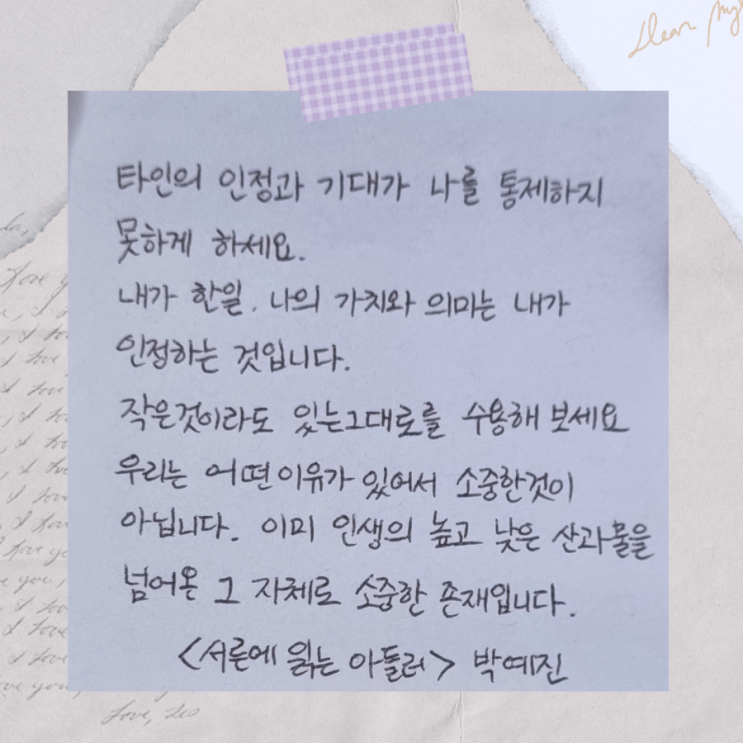 Dear my
타인의 인정과 기대가 나를 통제하지
못하게 하세요.
내가 한일. 나의 가치와 의미는 내가
인정하는 것입니다.
작은것이라도 있는그대로를 수용해 보세요
우리는 어떤이유가 있어서 소중한것이
아닙니다. 이미 인생의 높고 낮은 산과물을
넘어온 그 자체로 소중한 존재입니다.
<서른에 읽는 아들러> 박예진
Love, Les